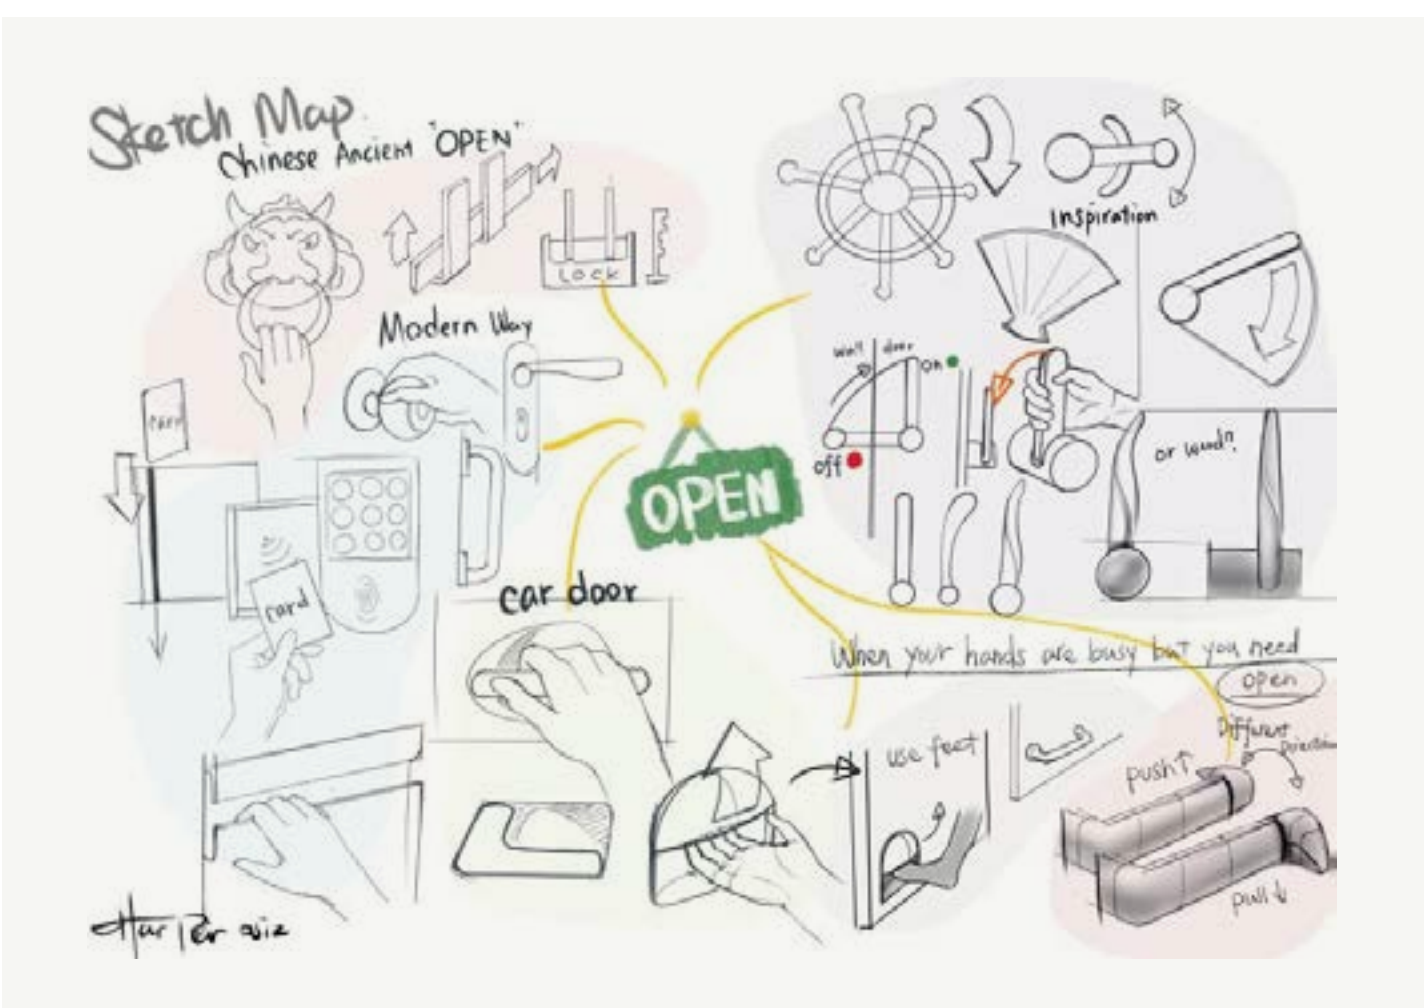 Sketch Map.
Chinese Ancient "OPEN"
LOCK
Modern Way
card
OPEN
car door
Inspiration
wall door
on
off
or wood?
When your hands are busy but you need
open
use feet
Different
Direction
push↑
pull↓